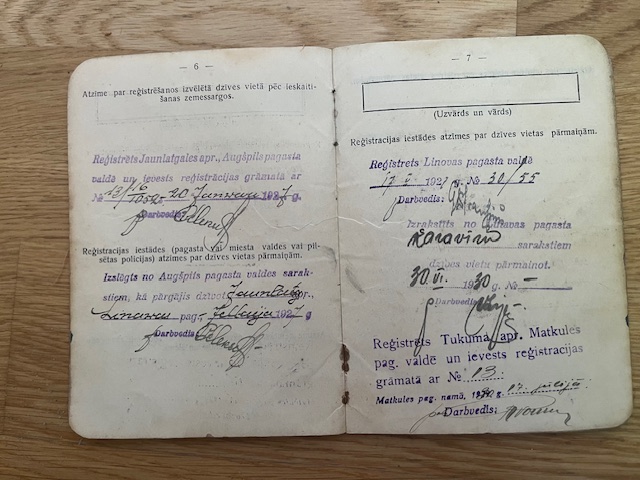 — 6 —
Atzīme par reģistrēšanos izvēlētā dzīves vietā pēc ieskaitī-
šanas zemessargos.
Reģistrēts Jaunlatgales apr., Augšpils pagasta
valdē un ievests reģistrācijas grāmatā ar
№ 20 Janvarī 1927 g.
Darbvedis:
Reģistrācijas iestādes (pagasta vai miesta valdes vai pil-
sētas policijas) atzīmes par dzīves vietas pārmaiņām.
Izslēgts no Augšpils pagasta valdes sarak-
stiem, kā pārgājis dzīvot apr.,
pag., 1927 g
Darbvedis:
— 7 —
(Uzvārds un vārds)
Reģistrācijas iestādes atzīmes par dzīves vietas pārmaiņām.
Reģistrēts Linovas pagasta valdē
17 № 20/55
Darbvedis:
Izrakstīts no Linavas pagasta
karavīru sarakstiem
dzīves vietu pārmainot.
30 VI 1930 g. № —
Darbvedis
Reģistrēts Tukuma apr. Matkules
pag. valdē un ievests reģistrācijas
grāmatā ar № 13.
Matkules pag. namā, g. 17. jūlijā
Darbvedis: